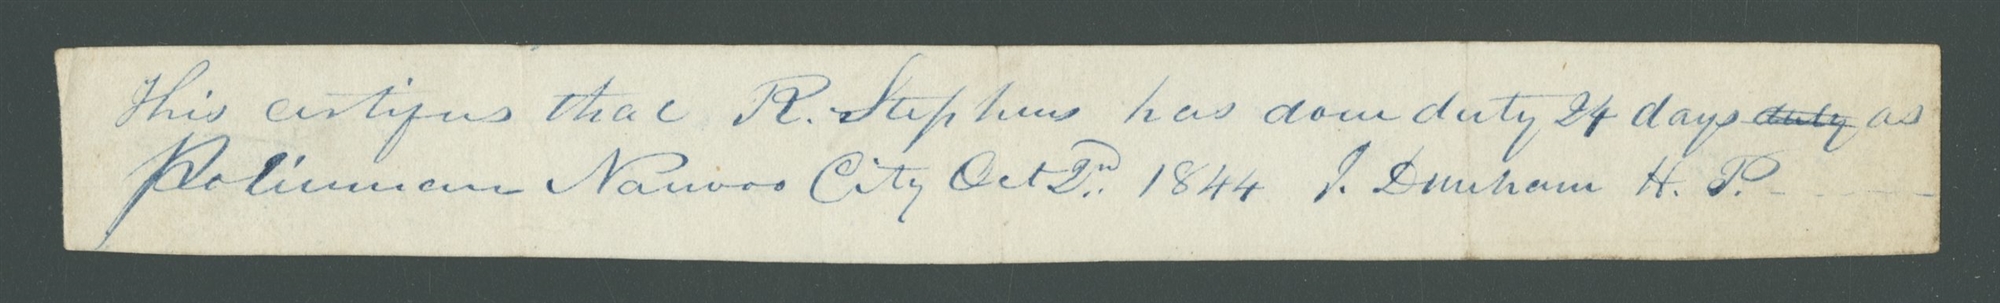 This certifies that R. Stephens has done duty 24 days duty as
Policeman Nauvoo City Oct 2nd. 1844 J. Dunham H. P.